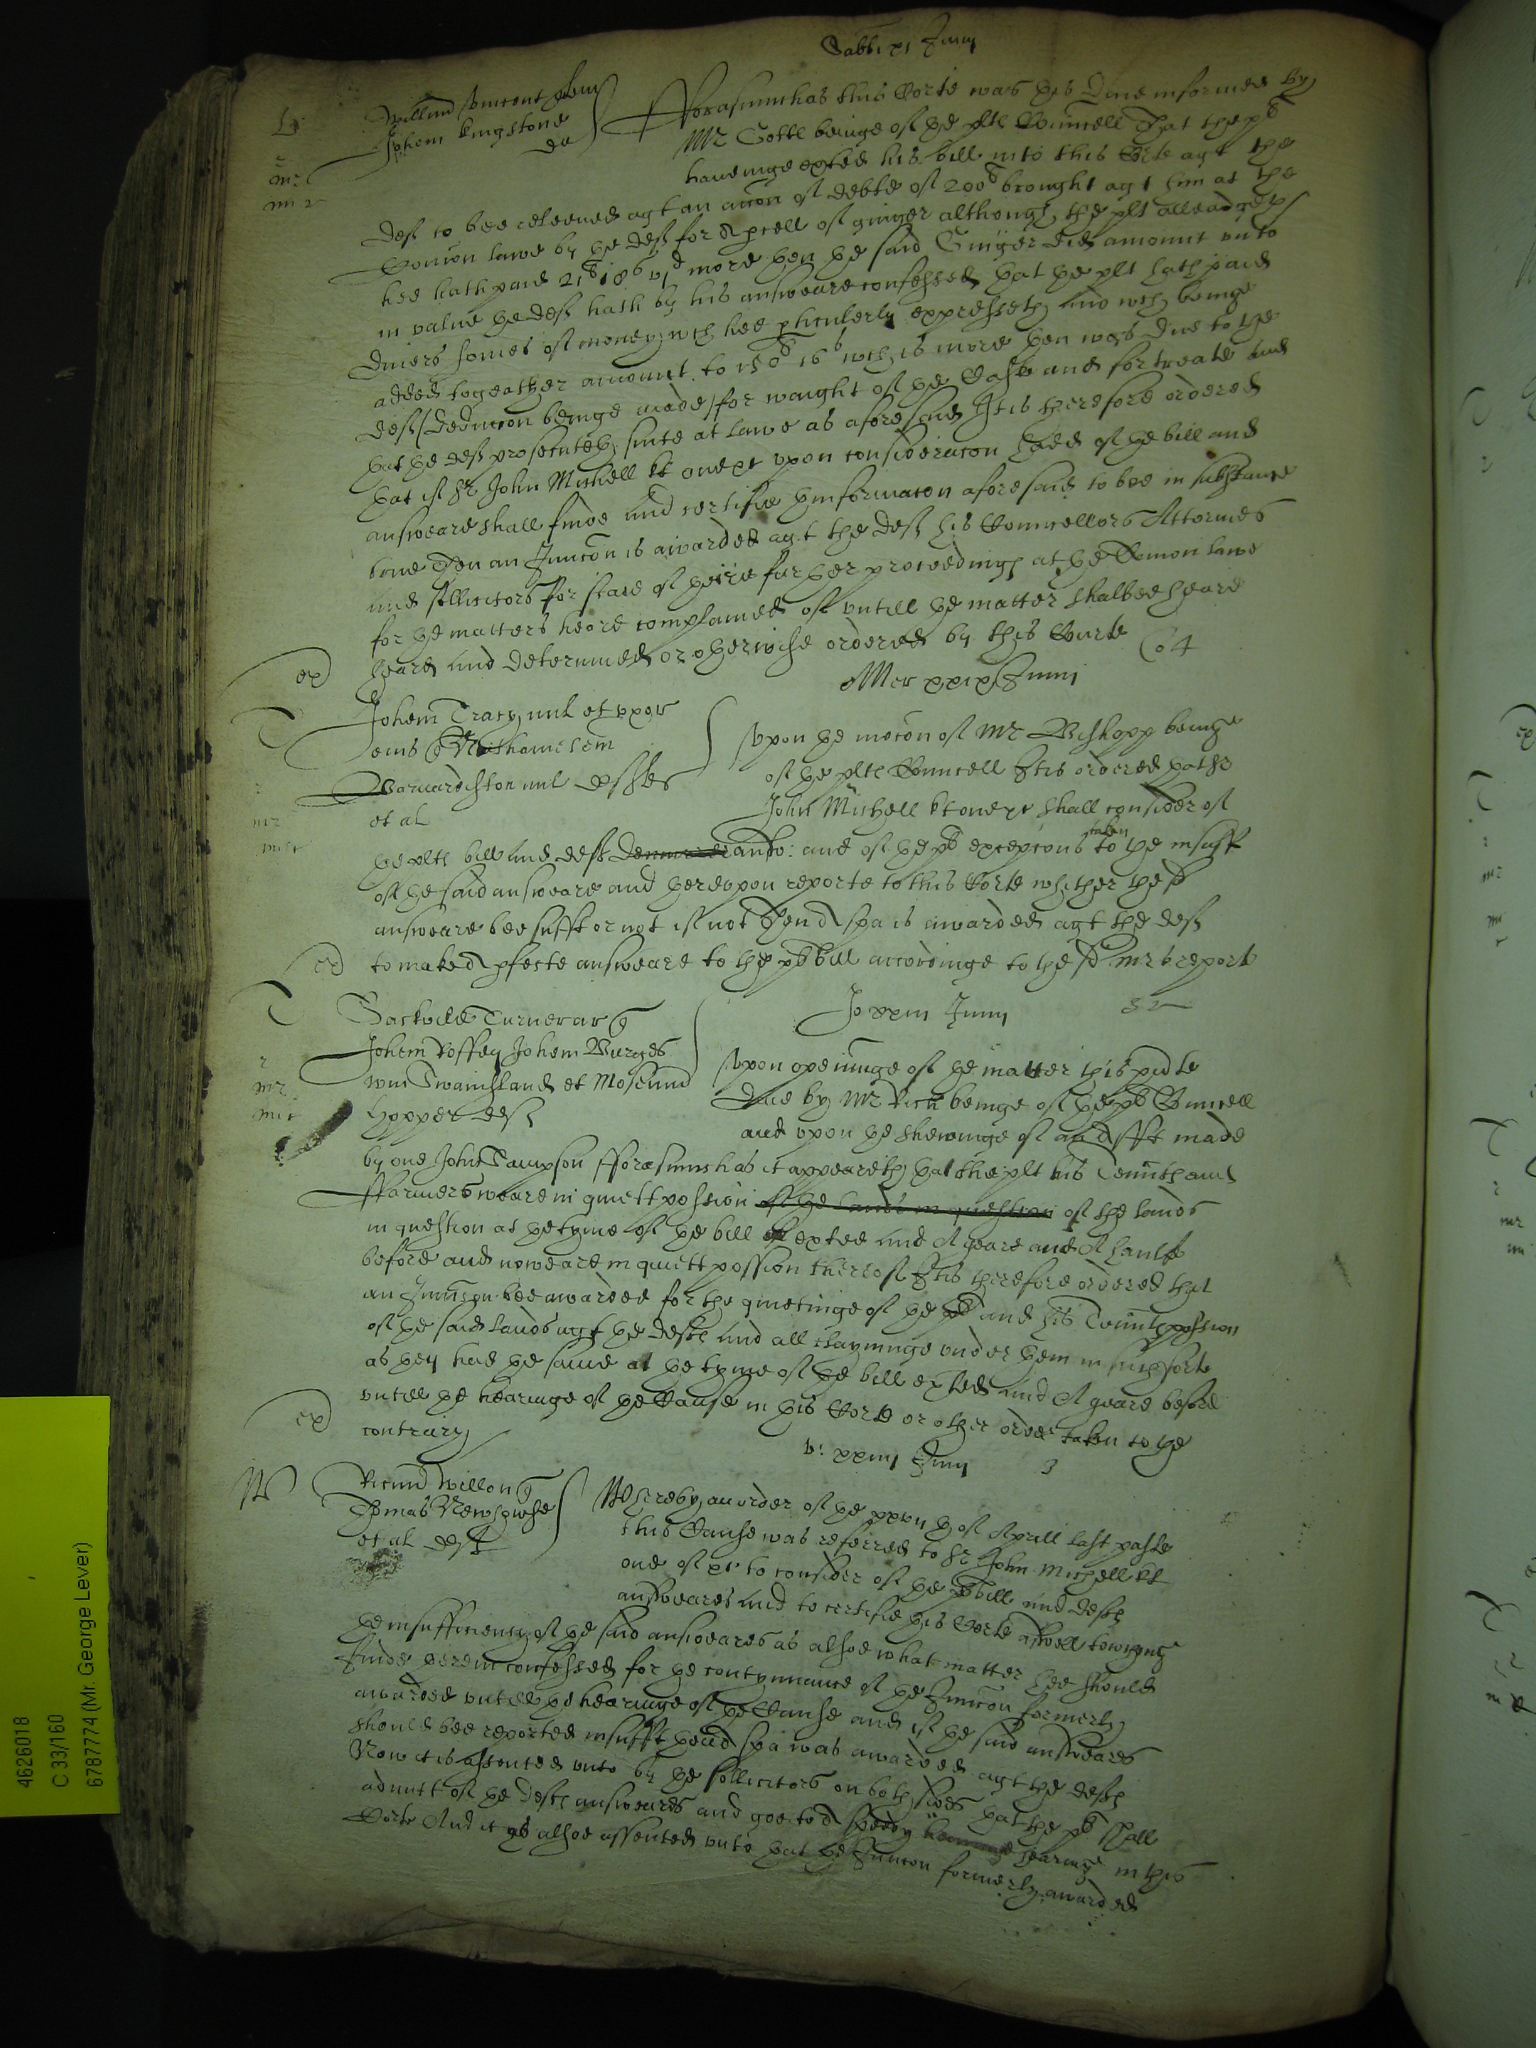 Sabbi xi Junij
Willm Vincent quer
Johem Kingstone
def
Forasmuchas this Corte was this daie informed by
Mr Cottl beinge of the plts Councell That the pl
haveinge exhited his bill into this Corte agt the
def to bee releeved agt an accon of debte of 200l brought agt him at the
Comon lawe by the def for A pcell of ginger although the plt alleadgeth
hee hath paid 21l 18s vid more then the said Ginger did amount unto
in value the def hath by his answeare confessed that the plt hath paid
divers somes of money wch hee pticulerly expresseth and wch beinge
added togeather amount to 150l 16s wch is more then was due to the
def (deduccon beinge made) for waight of the Caske and for treate and
that the def prosecuteth suite at lawe as aforesaid It is therefore ordered
that if Sr John Michell kt one &c upon consideracon had of the bill and
answeare shall finde and certifie thinformacon aforesaid to bee in substance
true Then an Iniuncon is awarded agt the def his Councellors Attornies
and sollicitors for staie of theire further proceedings at the Comon lawe
for the matters heere complained of untill the matter shalbee heare
heard and determined or otherwise ordered by this Courte
ex
Mer xxix Junij
Johem Tracy mil et uxor
eius q Nathanielem
Barnardiston mil deftes
et al
Upon the mocon of Mr Bishopp beinge
of the plts Councell It is ordered that Sr
John Michell kt one &c shall consider of
the plts bill and defts demurrer answ: and of the pls excepcons taken to the insuff
of the said answeare and thereupon reporte to this Corte whither the sd
answeare bee suffit or not if not Then A spa is awarded agt the def
to make A pfecte answeare to the pls bill accordinge to the sd Mrs report
ex
Jo xxiii Junij
Sackvile Turner ar q
Johem Roffey Johem Burges
Wm Swainsland et Mosend
Hopper def
Upon openinge of the matter this pnte
daie by Mr Rich beinge of the pls Councell
and upon the shewinge of an Afft made
by one John Sampson Forasmuchas it appeareth that the plt his Tennts and
Farmers weare in quiett possion of the lands in question of the lands
in question at the tyme of the bill exhited and A yeare and A haulfe
before and nowe are in quiett possion thereof It is therefore ordered that
an Iniuncon bee awarded for the quietinge of the pl and his Tennts possion
of the said lands agt the defts and all clayminge under them in such sorte
as they had the same at the tyme of the bill exhited and A yeare before
untill the hearinge of the Cause in this Corte or other order taken to the
contrary
ex
V: xxiiij Junij
Ricum Willon q
Thomas Newhowse
et al deft
Whereby an order of the xxvii th of Aprill last paste
this Cause was referred to Sr John Michell kt
one of &c to consider of the pls bill and defts
answeares and to certifie this Corte aswell towching
the insufficiency of the said answeares as alsoe what matter hee should
finde therein confessed for the contynuance of the Iniuncon formerly
awarded untill the hearinge of the Cause and if the said answeares
should bee reported insufft then A spa was awarded agt the defts
Now it is assented unto by the sollicitors on both sides that the pl shall
admitt of the defts answeares and goe to A speedy hearinge in this
Corte And it is alsoe assented unto that the Iniuncon formerly awarded
4626018
C 33/160
6787774 (Mr. George Lever)